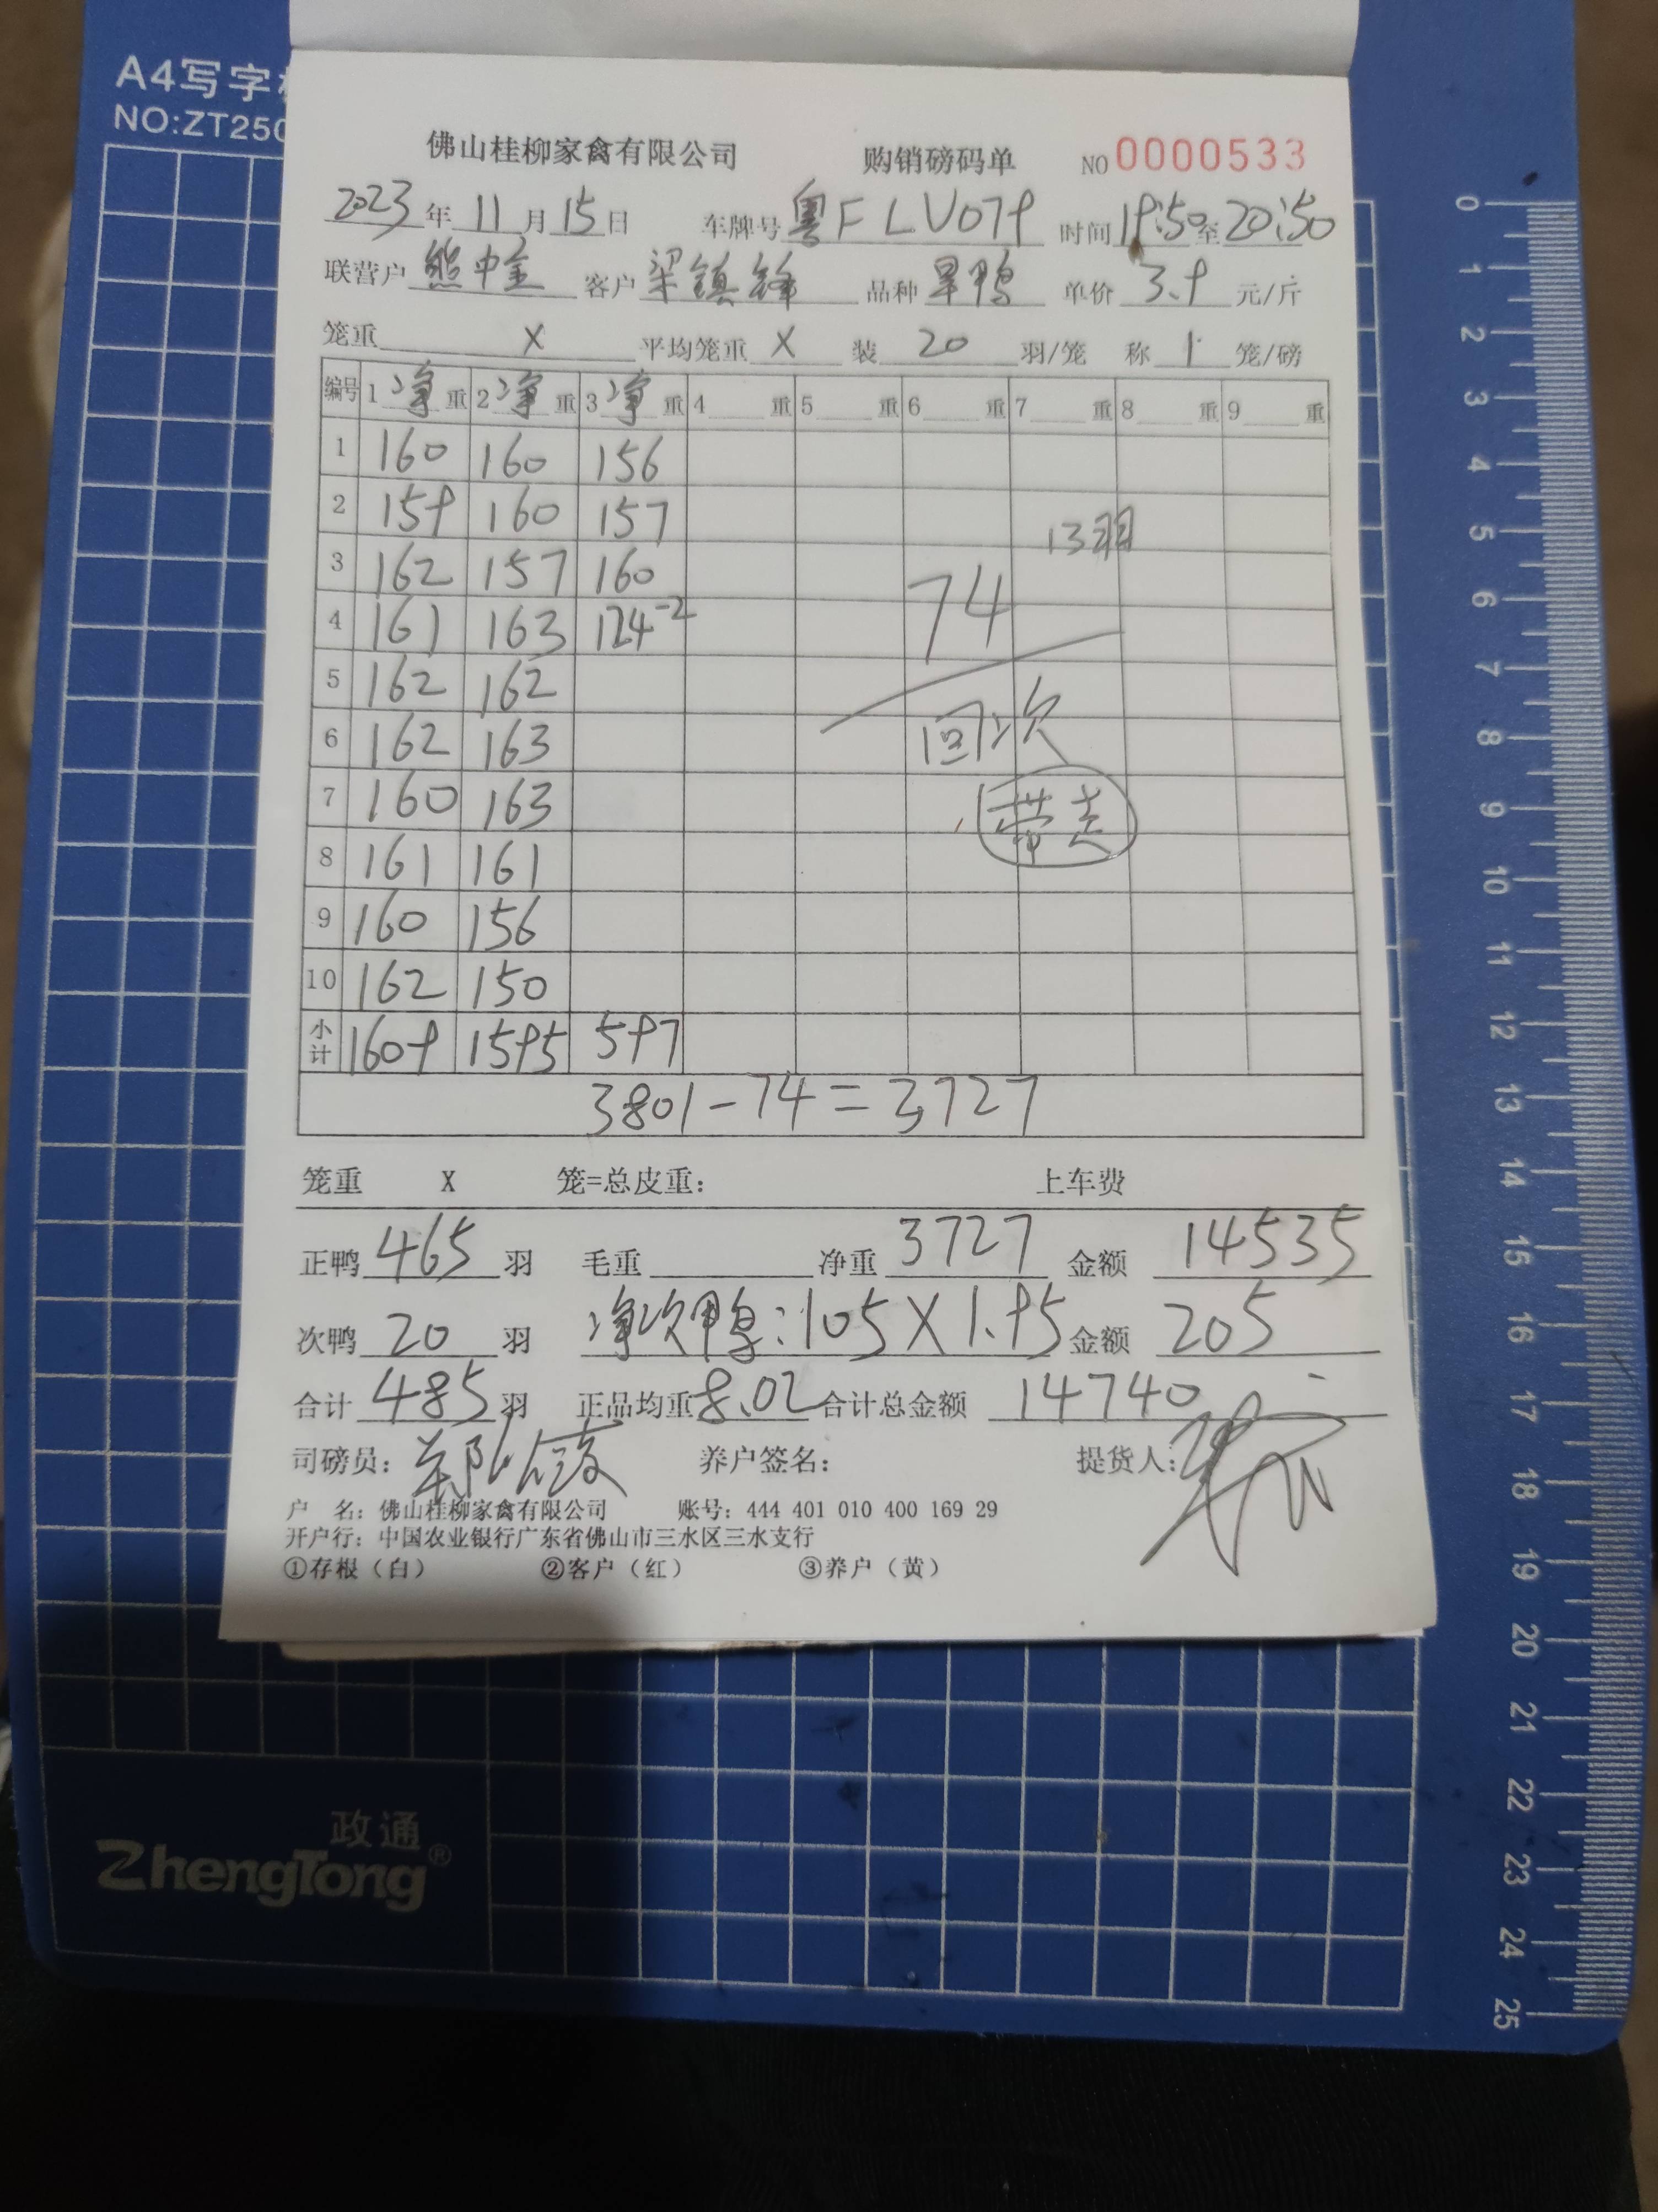 A4写字
NO:ZT250
佛山桂柳家禽有限公司 购销磅码单 NO 0000533
2023年11月15日 车牌号 粤F LV079 时间19:50至20:50
联营户 熊中金 客户 梁镇锋 品种 旱鸭 单价 3.9 元/斤
笼重 X 平均笼重 X 装 20 羽/笼 称 1 笼/磅
编号 1净重 2净重 3净重 4 重 5 重 6 重 7 重 8 重 9 重
1 160 160 156
2 159 160 157 13羽
3 162 157 160 74
4 161 163 124-2
5 162 162
6 162 163 回次
7 160 163 带走
8 161 161
9 160 156
10 162 150
小计 1609 1595 597
3801-74=3727
笼重 X 笼=总皮重: 上车费
正鸭 465 羽 毛重 净重 3727 金额 14535
次鸭 20 羽 净次鸭:105X1.95 金额 205
合计 485 羽 正品均重8.02 合计总金额 14740
司磅员: 养户签名: 提货人:
户 名:佛山桂柳家禽有限公司 账号:444 401 010 400 169 29
开户行:中国农业银行广东省佛山市三水区三水支行
①存根(白) ②客户(红) ③养户(黄)
政通
ZhengTong®
0
1
2
3
4
5
6
7
8
9
10
11
12
13
14
15
16
17
18
19
20
21
22
23
24
25